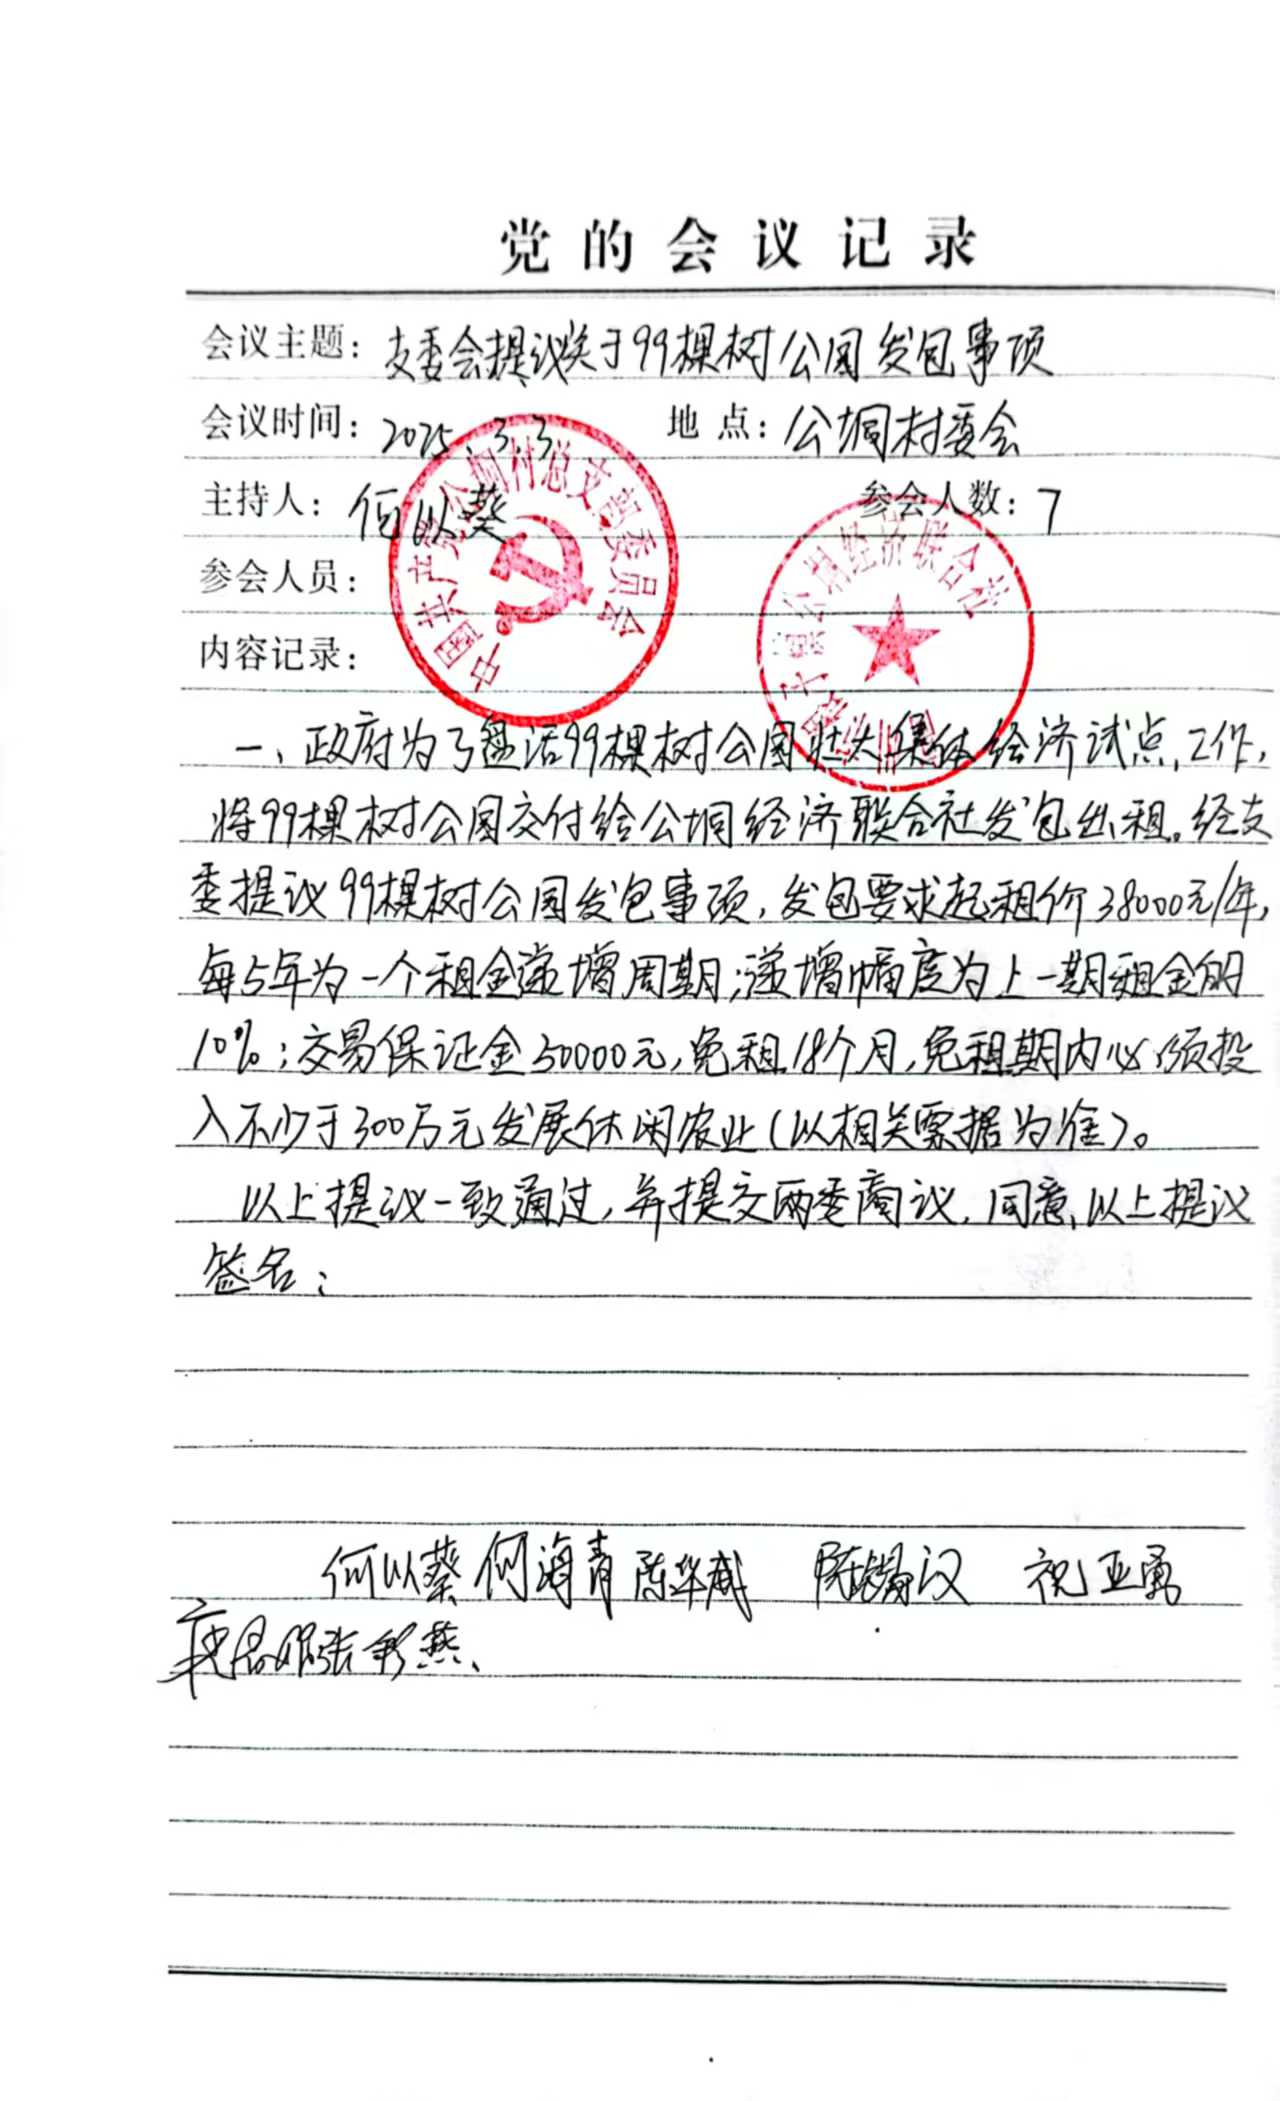 党的会议记录
会议主题：支委会提议关于99棵树公园发包事项
会议时间：2025.3.3 地点：公垌村委会
主持人：何以葵 参会人数：7
参会人员：
内容记录：
中国共产党公垌村总支部委员会
公垌经济联合社
一、政府为了盘活99棵树公园壮大集体经济试点工作，
将99棵树公园交付给公垌经济联合社发包出租。经支
委提议99棵树公园发包事项，发包要求起租价38000元/年，
每5年为一个租金递增周期；递增幅度为上一期租金的
10%；交易保证金50000元，免租18个月，免租期内必须投
入不少于300万元发展休闲农业（以相关票据为准）。
以上提议一致通过，并提交两委商议，同意以上提议
签名：
何以葵 何海青 陈华威 陈锡汉 祝亚勇
张彩燕